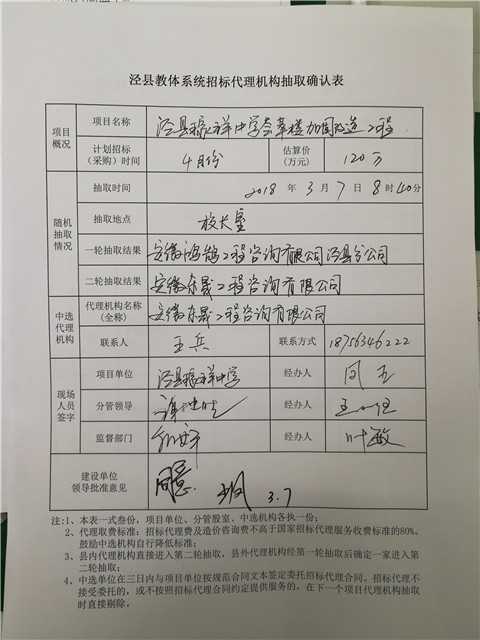 泾县教体系统招标代理机构抽取确认表
项目概况 项目名称 泾县 中学 楼加固改造工程
计划招标（采购）时间 4月份 估算价（万元） 120万
随机抽取情况 抽取时间 2018年3月7日8时40分
抽取地点 校大
一轮抽取结果 安徽鸿鹄工程咨询有限公司泾县分公司
二轮抽取结果 安徽东晟工程咨询有限公司
中选代理机构 代理机构名称（全称） 安徽东晟工程咨询有限公司
联系人 王兵 联系方式 18756346222
现场人员签字 项目单位 泾县 中学 经办人
分管领导 经办人
监督部门 经办人 叶敏
建设单位领导批准意见 同意 3.7
注:1、本表一式叁份，项目单位、分管股室、中选机构各执一份；
2、代理取费标准：招标代理费及造价咨询费不高于国家招标代理服务收费标准的80%。
鼓励中选机构自行降低标准；
3、县内代理机构直接进入第二轮抽取，县外代理机构经第一轮抽取后确定一家进入第
二轮抽取；
4、中选单位在三日内与项目单位按规范合同文本签定委托招标代理合同、招标代理不
接受委托的，或不按照招标代理合同约定提供服务的，在下一个项目代理机构抽取
时直接剔除。